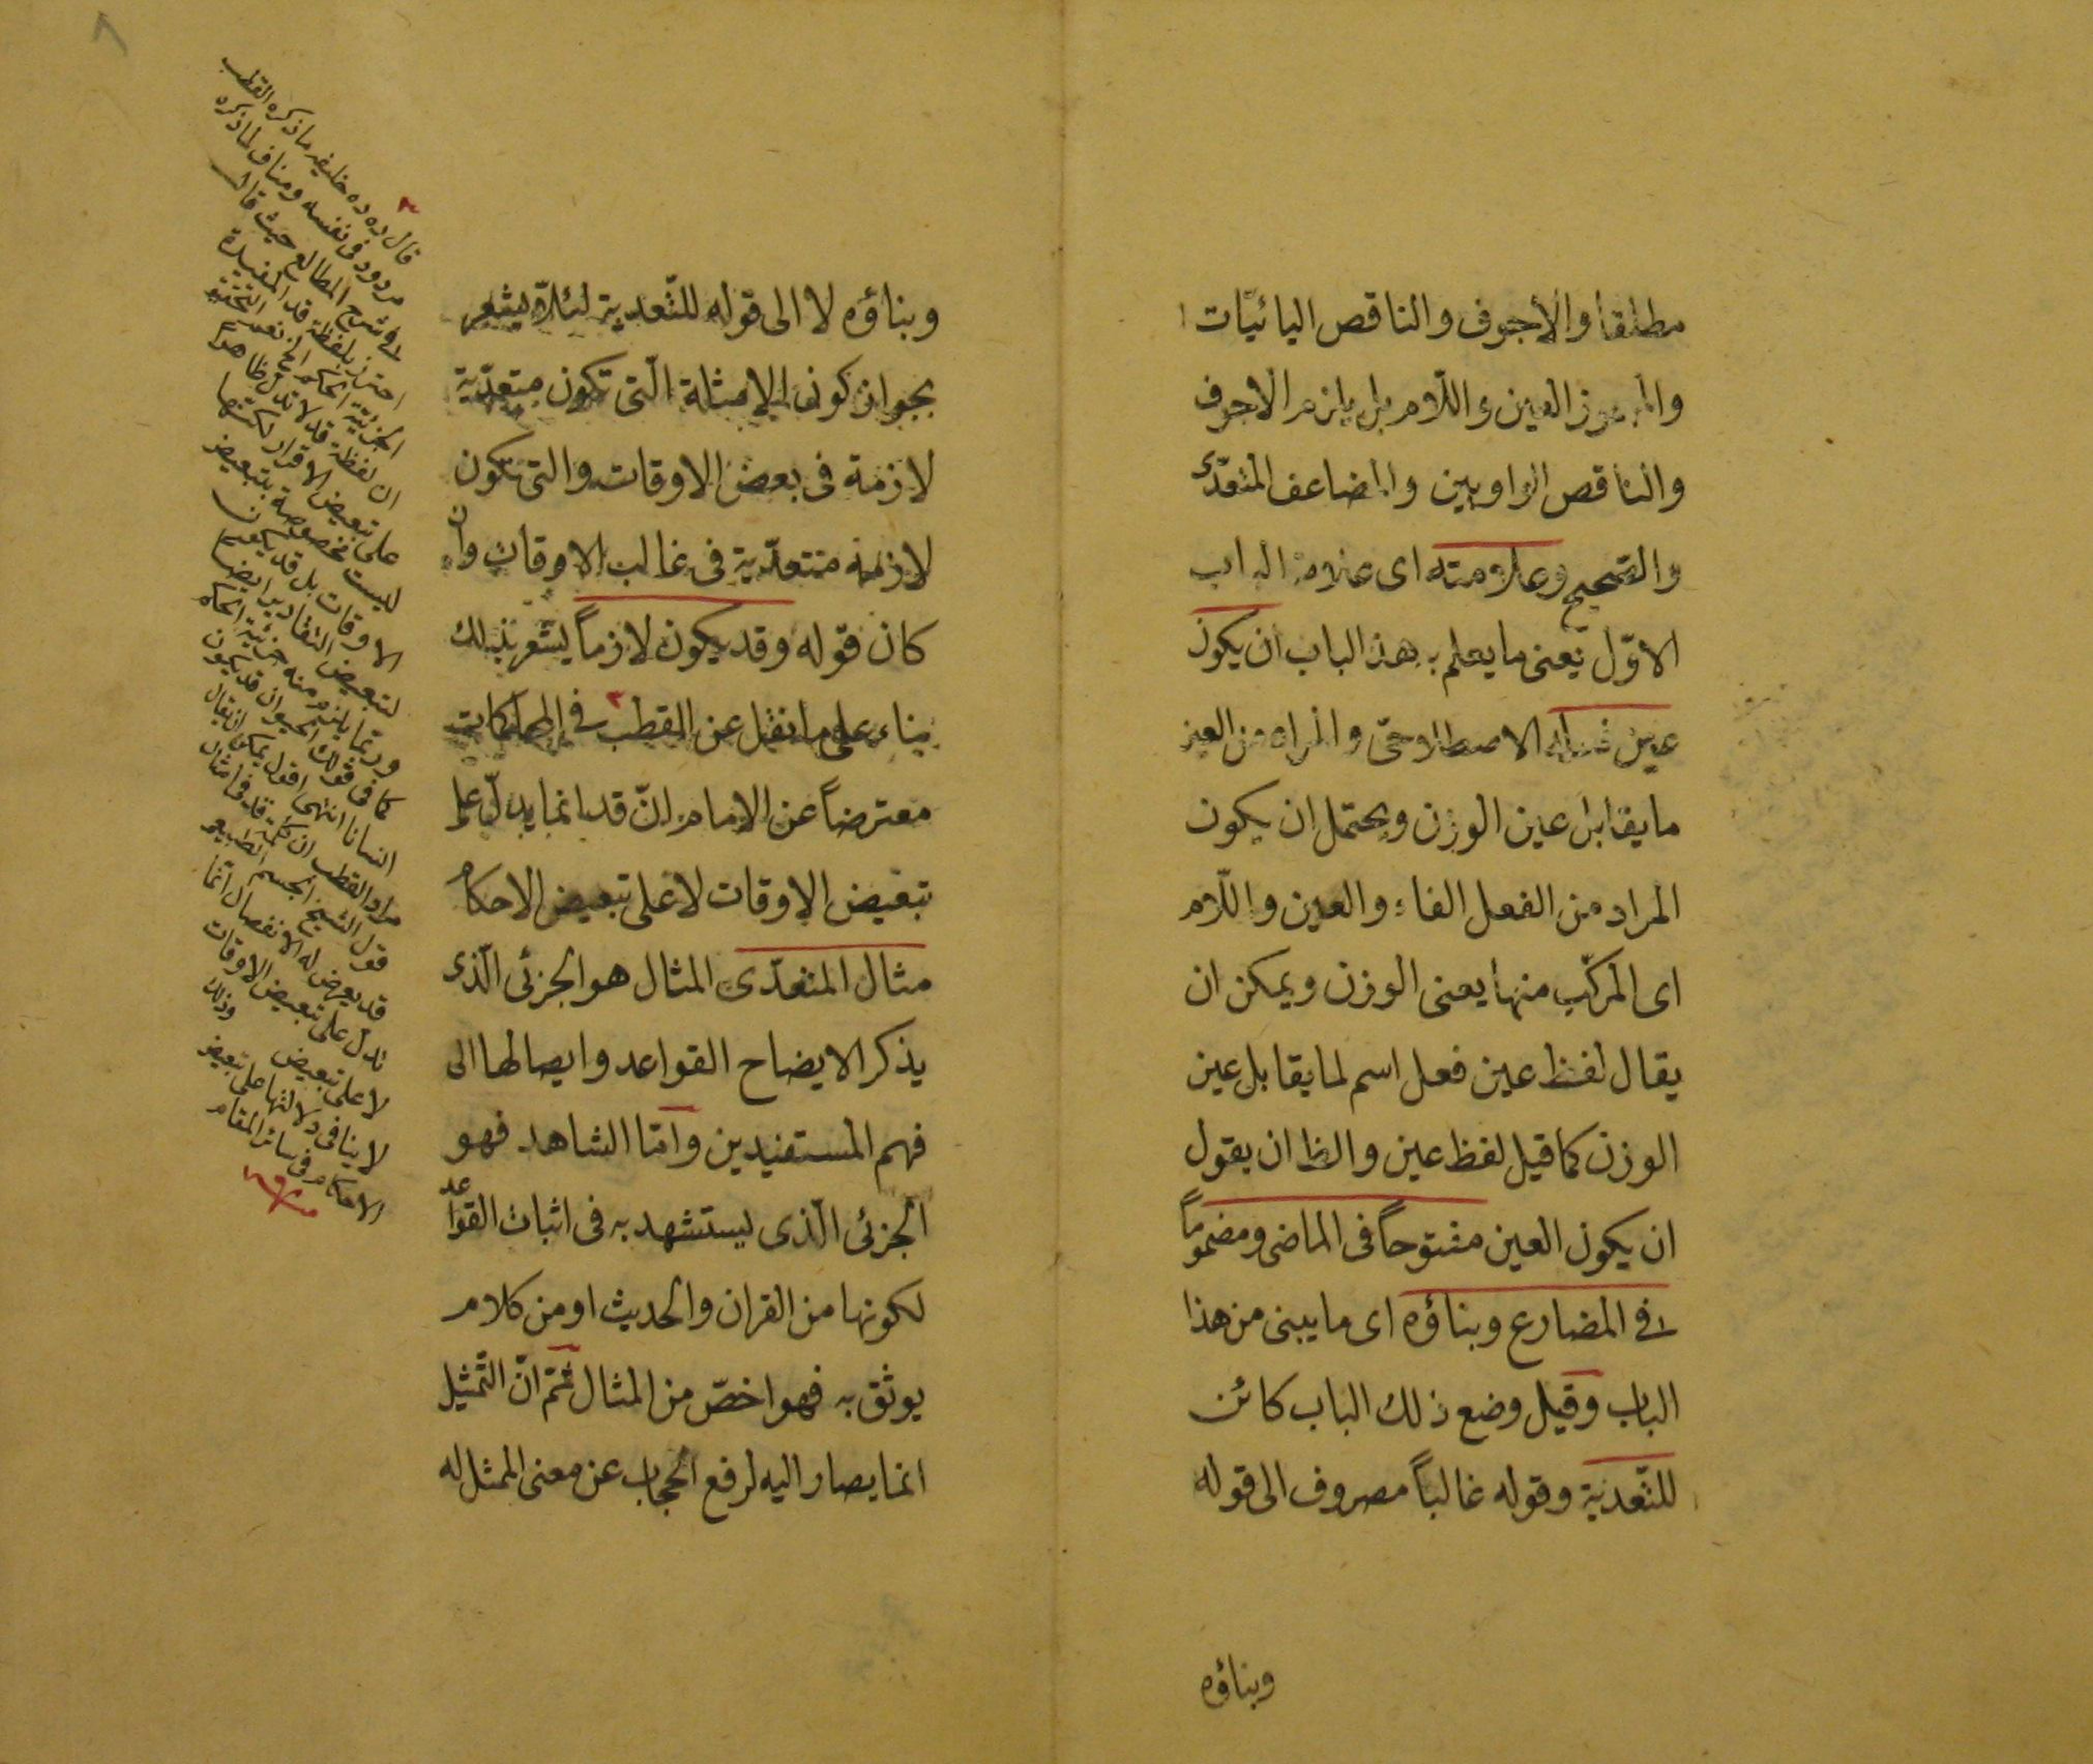 مطلقا والأجوف والناقص اليائيّات
والمهموز العين واللّام بل يلزم الاجوف
والناقص الواويين والمضاعف المتعدّى
والصّحيح وعلامته اى علامة الباب
الاوّل يعنى ما يعلم به هذا الباب ان يكون
عين فعله الاصطلاحىّ والمراد من العين
ما يقابل عين الوزن ويحتمل ان يكون
المراد من الفعل الفاء والعين واللّام
اى المركّب منها يعنى الوزن ويمكن ان
يقال لفظ عين فعل اسم لما يقابل عين
الوزن كما قيل لفظ عين والظ ان يقول
ان يكون العين مفتوحاً فى الماضى ومضموماً
فى المضارع وبناؤه اى ما يبنى من هذا
الباب وقيل وضع ذلك الباب كائن
للتّعدية وقوله غالباً مصروف الى قوله
وبناؤه
وبناؤه لا الى قوله للتّعدية لئلّا يشعر
بجواز كون الامثلة الّتى تكون متعدّية
لازمة فى بعض الاوقات والتى تكون
لازمة متعدّية فى غالب الاوقات وان
كان قوله وقد يكون لازماً يشعر بذلك
بناء على ما نقل عن القطب فى المحاكمات
معترضاً عن الامام انّ قد انما يدلّ على
تبعيض الاوقات لا على تبعيض الاحكام
مثال المتعدّى المثال هو الجزئى الّذى
يذكر لايضاح القواعد وايصالها الى
فهم المستفيدين وامّا الشاهد فهو
الجزئى الّذى يستشهد به فى اثبات القواعد
لكونها من القران والحديث او من كلام
يوثق به فهو اخصّ من المثال ثمّ انّ التّمثيل
انما يصار اليه لرفع الحجاب عن معنى الممثل له
قال ده ده خليفه ما ذكره القطب
مردود فى نفسه ومناف لما ذكره
فى شرح المطالع حيث قال
احترز بلفظة قد المفيدة
الجزئيّة الحكم الخ نعم التحقيق
ان لفظة قد لا تدل ظاهرا
على تبعيض الافراد لكنّها
ليست مخصوصة بتبعيض
الاوقات بل قد يكون
لتبعيض التقادير ايضا
وربّما يلزم منه جزئية الحكم
كما فى قولك الحيوان قد يكون
انسانا انتهى اقول يمكن ان يقال
مراد القطب ان كلمة قد فى امثال
قول الشيخ الجسم الطبيعى
قد يعرض له الانفصال انّما
تدل على تبعيض الاوقات
لا على تبعيض وذلك
لا ينافى دلالتها على تبعيض
الاحكام فى سائر المقام